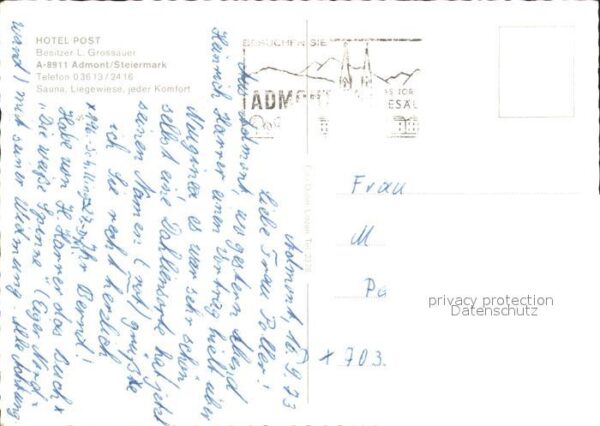 HOTEL POST
Besitzer L. Grossauer
A-8911 Admont/Steiermark
Telefon 03613/2416
Sauna, Liegewiese, jeder Komfort
BESUCHEN SIE
ADMONT
Admont 16.9.73
Liebe Frau
Aus Admont, wo gestern Abend
Heinrich Harrer einen Vortrag hielt über
Neuginea es war sehr schön,
selbst eine Dahliensorte hat jetzt
seinen Namen (rot) grüßte
ich Sie recht herzlich
Ihr Bernd!
Habe von H. Harrer das Buch x
"Die weiße Spinne" (Eiger Nord-
wand) mit seiner Widmung.
Frau
M
Pa
x 703.
privacy protection
Datenschutz